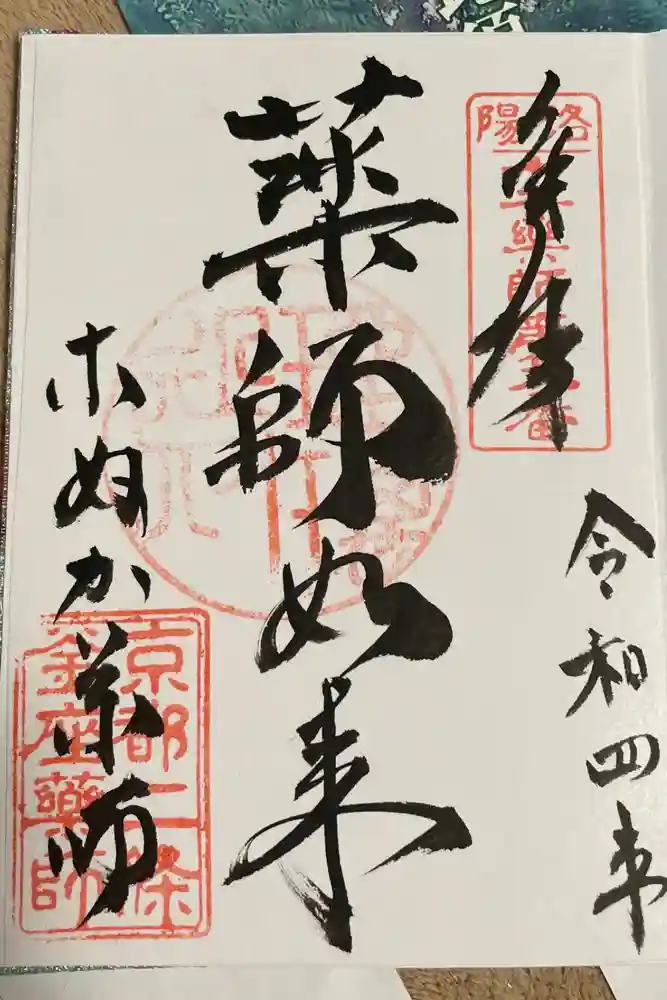 洛陽
奉拝
令和四年
薬師如来
こぬか薬師
京都二條
釜座藥師